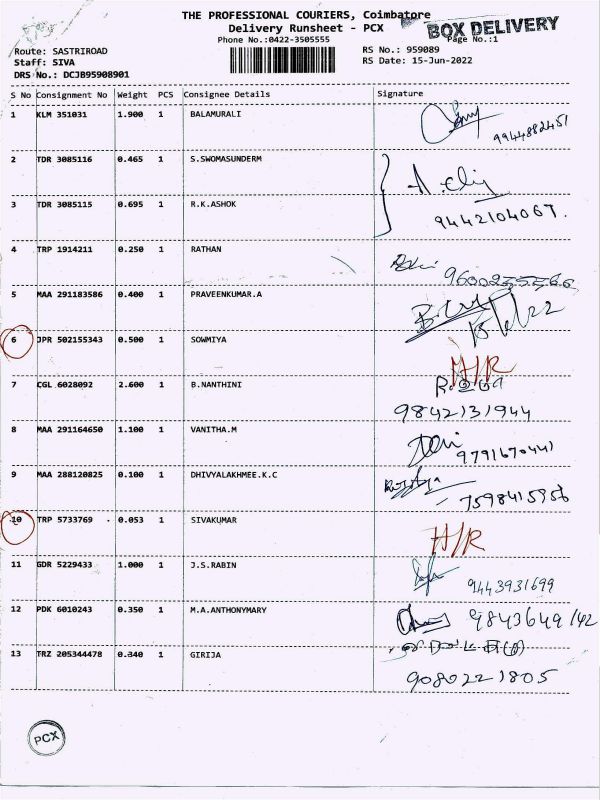 THE PROFESSIONAL COURIERS, Coimbatore
Delivery Runsheet - PCX
BOX DELIVERY
Phone No.:0422-3505555
Page No.:1
Route: SASTRIROAD
RS No.: 959089
Staff: SIVA
RS Date: 15-Jun-2022
DRS No.: DCJB95908901
S No Consignment No Weight PCS Consignee Details Signature
1 KLM 351031 1.900 1 BALAMURALI
9944882451
2 TDR 3085116 0.465 1 S.SWOMASUNDERM
3 TDR 3085115 0.695 1 R.K.ASHOK
9442104067.
4 TRP 1914211 0.250 1 RATHAN
5 MAA 291183586 0.400 1 PRAVEENKUMAR.A
6 JPR 502155343 0.500 1 SOWMIYA
H/R
7 CGL 6028092 2.600 1 B.NANTHINI
9842131944
8 MAA 291164650 1.100 1 VANITHA.M
9791670441
9 MAA 288120825 0.100 1 DHIVYALAKHMEE.K.C
7598415956
10 TRP 5733769 0.053 1 SIVAKUMAR
H/R
11 GDR 5229433 1.000 1 J.S.RABIN
9443931699
12 PDK 6010243 0.350 1 M.A.ANTHONYMARY
9843649142
13 TRZ 205344478 0.340 1 GIRIJA
9080221805
PCX